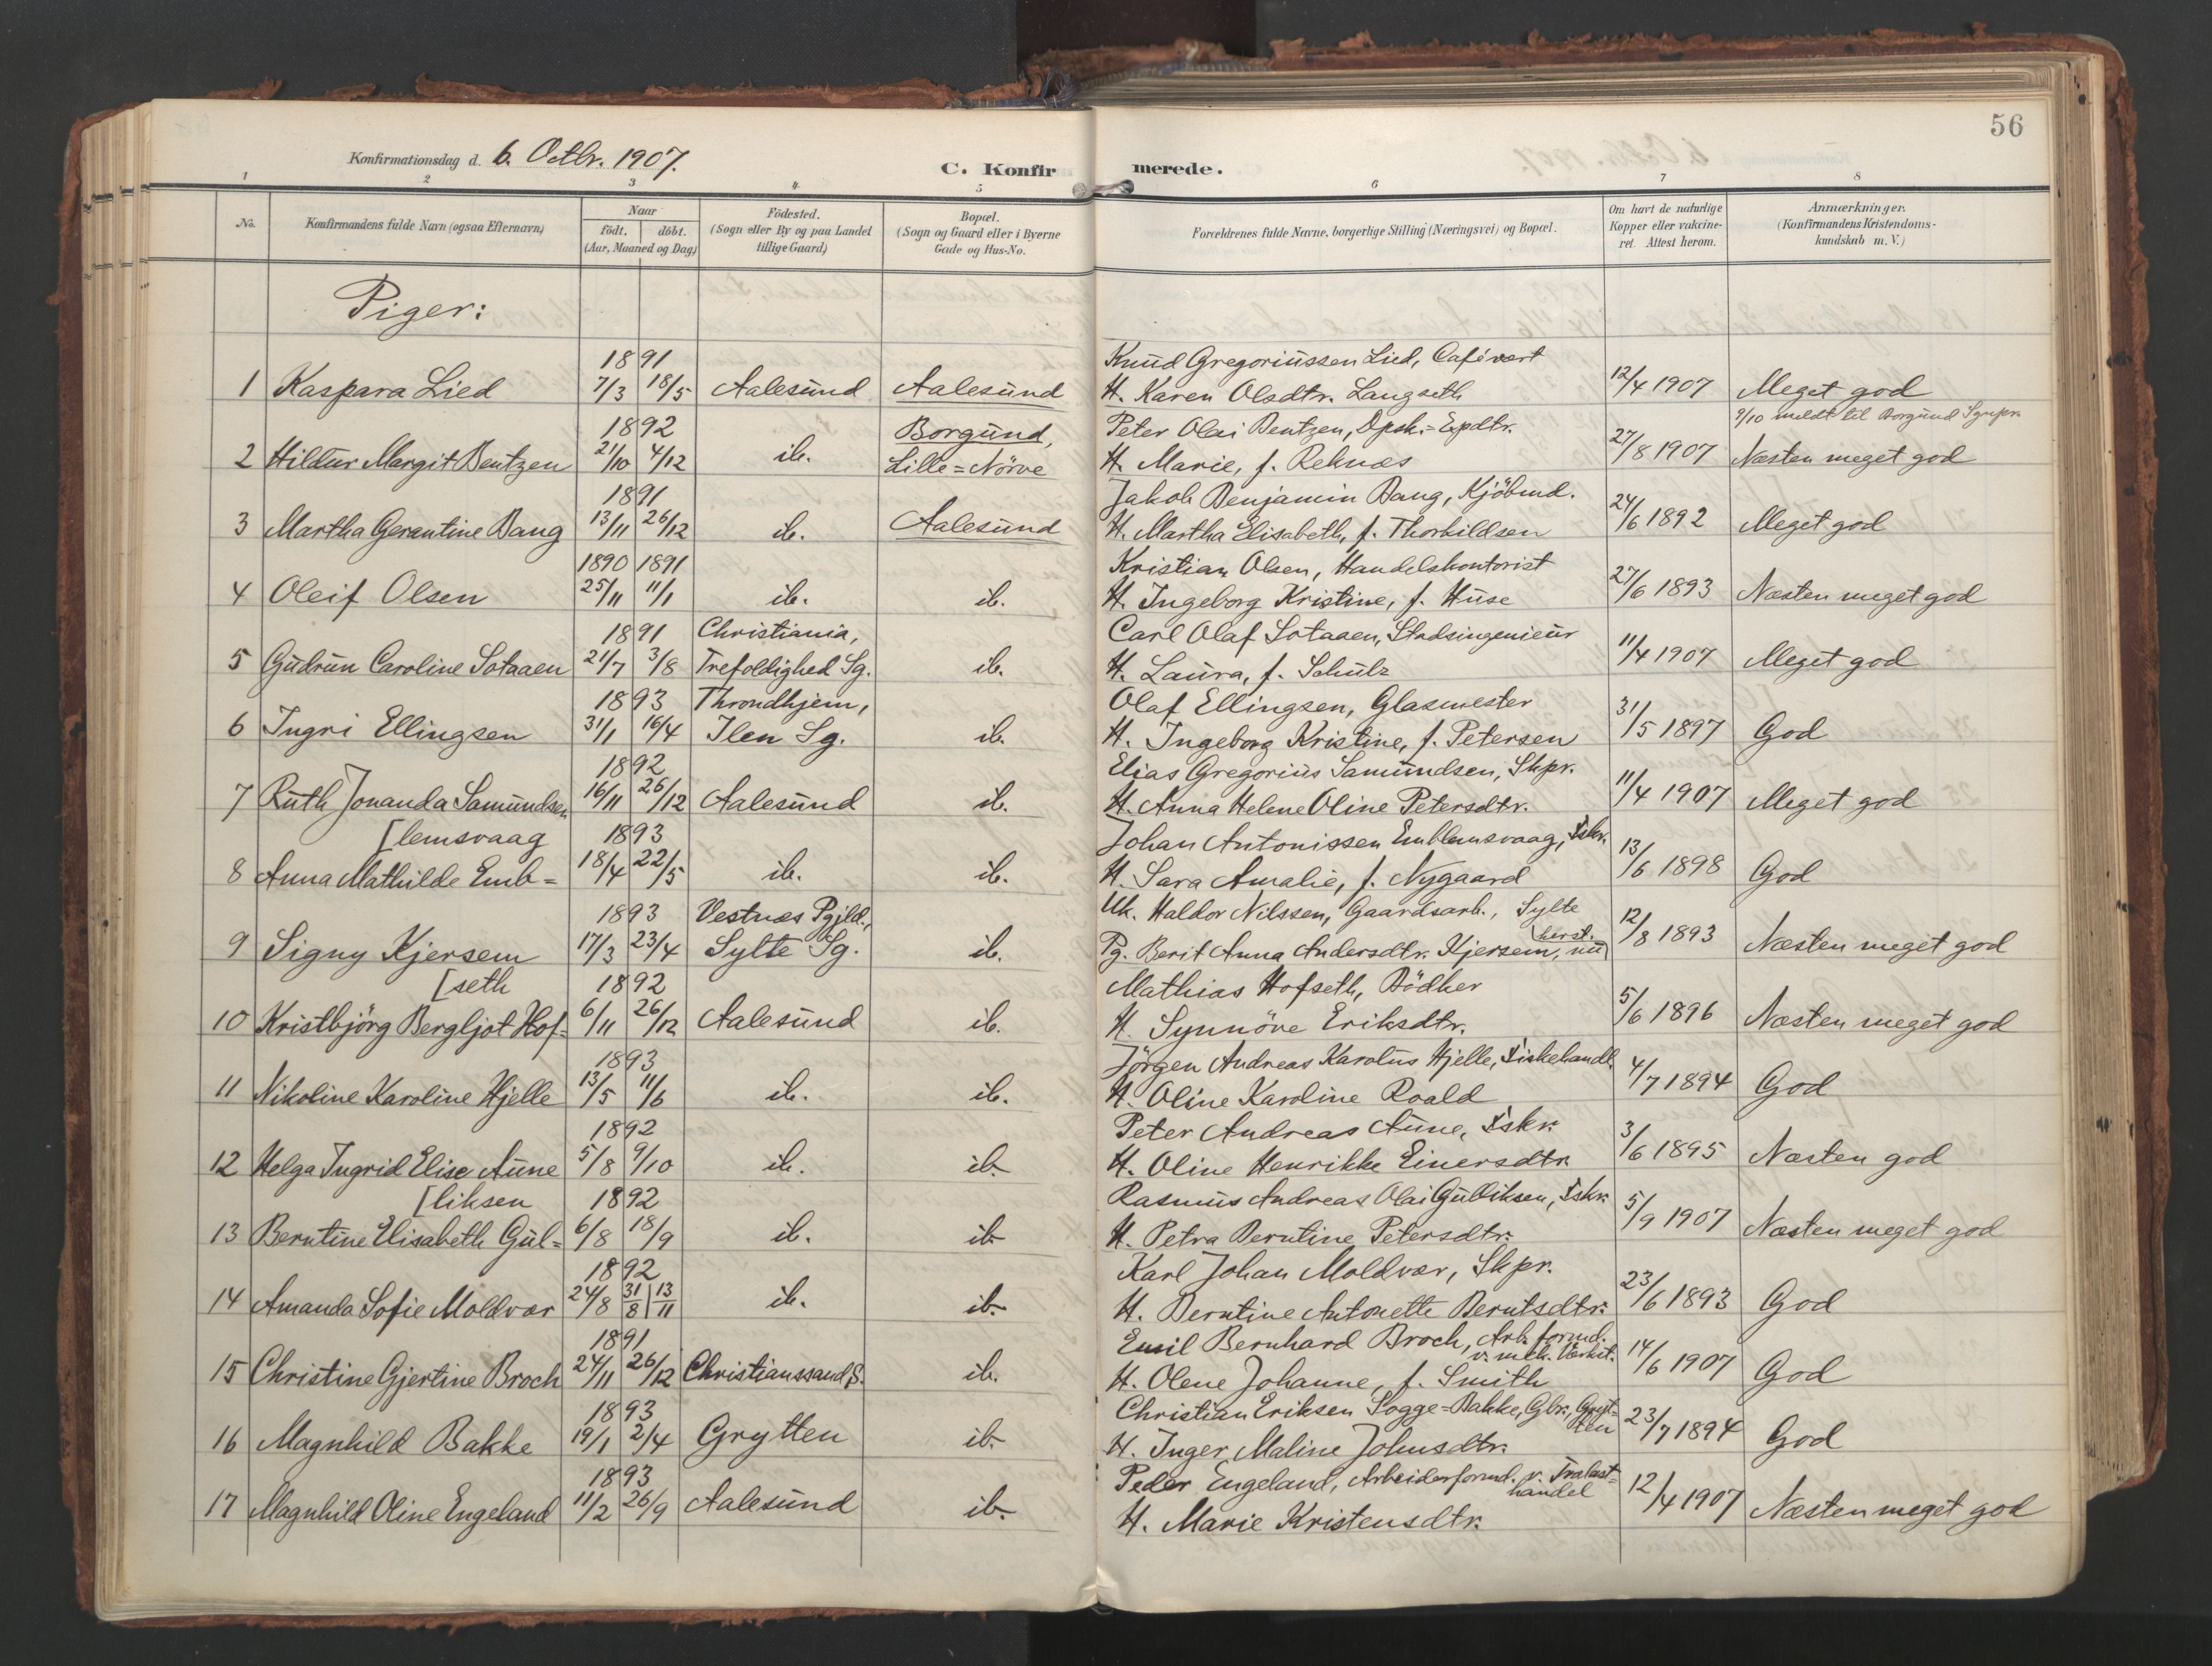 56
Konfirmationsdag d. 6. Octbr. 1907.
C. Konfirmerede.
1 2 3 4 5 6 7 8
No.
Konfirmandens fulde Navn (ogsaa Efternavn)
Naar
födt. döbt.
(Aar, Maaned og Dag)
Födested.
(Sogn eller By og paa Landet
tillige Gaard)
Bopæl.
(Sogn og Gaard eller i Byerne
Gade og Hus-No.
Forældrenes fulde Navne, borgerlige Stilling (Næringsvei) og Bopæl.
Om havt de naturlige
Kopper eller vakcine-
ret. Attest herom.
Anmærkninger.
(Konfirmandens Kristendoms-
kundskab m. V.)
Piger:
1891 Knud Gregoriussen Lied, Cafévert
1 Kaspara Lied 7/3 18/5 Aalesund Aalesund H. Karen Olsdtr. Langseth 12/4 1907 Meget god
9/10 meldt til Borgund Sgnpr.
1892 Borgund, Peter Olai Bentzen, Dpsk.=Expdtr.
2 Hildur Margit Bentzen 21/10 4/12 ib. Lille=Nörve H. Marie, f. Reknæs 27/8 1907 Næsten meget god
1891 Jakob Benjamin Bang, Kjöbmd.
3 Martha Gerantine Bang 13/11 26/12 ib. Aalesund H. Martha Elisabeth, f. Thorkildsen 24/6 1892 Meget god
1890 1891 Kristian Olsen, Handelskontorist
4 Oleif Olsen 25/11 11/1 ib. ib. H. Ingeborg Kristine, f. Huse 27/6 1893 Næsten meget god
1891 Christiania, Carl Olaf Sotaaen, Stadsingeniør
5 Gudrun Caroline Sotaaen 21/7 3/8 Trefoldighed Sg. ib. H. Laura, f. Schulz 11/4 1907 Meget god
1893 Throndhjem, Olaf Ellingsen, Glasmester
6 Ingri Ellingsen 31/1 16/4 Ilen Sg. ib. H. Ingeborg Kristine, f. Petersen 31/5 1897 God
1892 Elias Gregorius Samundsen, Skpr.
7 Ruth Jonanda Samundsen 16/11 26/12 Aalesund ib. H. Anna Helene Oline Petersdtr. 11/4 1907 Meget god
[lemsvaag 1893 Johan Antonissen Emblemsvaag, Fskr.
8 Anna Mathilde Emb= 18/4 22/5 ib. ib. H. Sara Amalie, f. Nygaard 13/6 1898 God
1893 Vestnæs Pgjld., Uk. Haldor Nilssen, Gaardsarb., Sylte
9 Signy Kjersem 17/3 23/4 Sylte Sg. ib. Pg. Berit Anna Andersdtr. Kjersem, nu [herst. 12/8 1893 Næsten meget god
[seth 1892 Mathias Hofseth, Bödker
10 Kristbjörg Bergljot Hof= 6/11 26/12 Aalesund ib. H. Synnöve Eriksdtr. 5/6 1896 Næsten meget god
1893 Jörgen Andreas Karolus Hjelle, Fiskehandl.
11 Nikoline Karoline Hjelle 13/5 11/6 ib. ib. H. Oline Karoline Roald 4/7 1894 God
1892 Peter Andreas Aune, Fskr.
12 Helga Ingrid Elise Aune 5/8 9/10 ib. ib. H. Oline Henrikke Einersdtr. 3/6 1895 Næsten god
[liksen 1892 Rasmus Andreas Olai Gulliksen, Fskr.
13 Berntine Elisabeth Gul= 6/8 18/9 ib. ib. H. Petra Berntine Petersdtr. 5/9 1907 Næsten meget god
1892 Karl Johan Moldvær, Skpr.
14 Amanda Sofie Moldvær 24/8 31/8 | 13/11 ib. ib. H. Berntine Antonette Berntsdtr. 23/6 1893 God
1891 Emil Bernhard Broch, Arb. formd.
v. mek. Værkst.
15 Christine Gjertine Broch 24/11 26/12 Christianssand S. ib. H. Olene Johanne, f. Smith 14/6 1907 God
1893 Christian Eriksen Sogge=Bakke, Gbr., Gryt=
ten
16 Magnhild Bakke 19/1 2/4 Grytten ib. H. Inger Maline Johnsdtr. 23/7 1894 God
1893 Peder Engeland, Arbeiderformd. v. Trælast=
handel
17 Magnhild Oline Engeland 11/2 26/9 Aalesund ib. H. Marie Kristensdtr. 12/4 1907 Næsten meget god